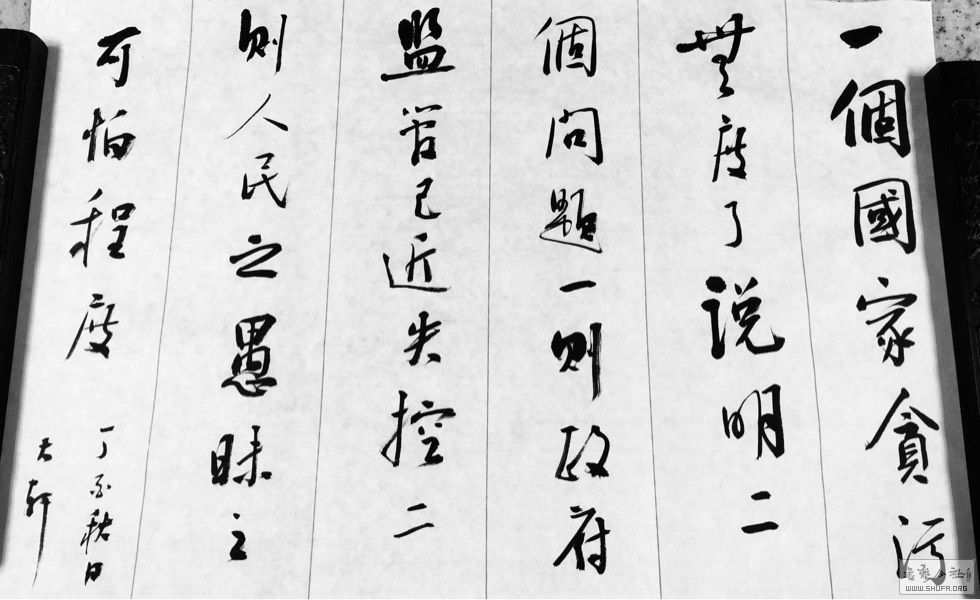 一個國家貪污
無度了说明二
個問題一则政府
监管已近失控二
则人民之愚昧之
可怕程度
丁酉秋日
天轩
書艺公社
WWW.SHUFA.ORG